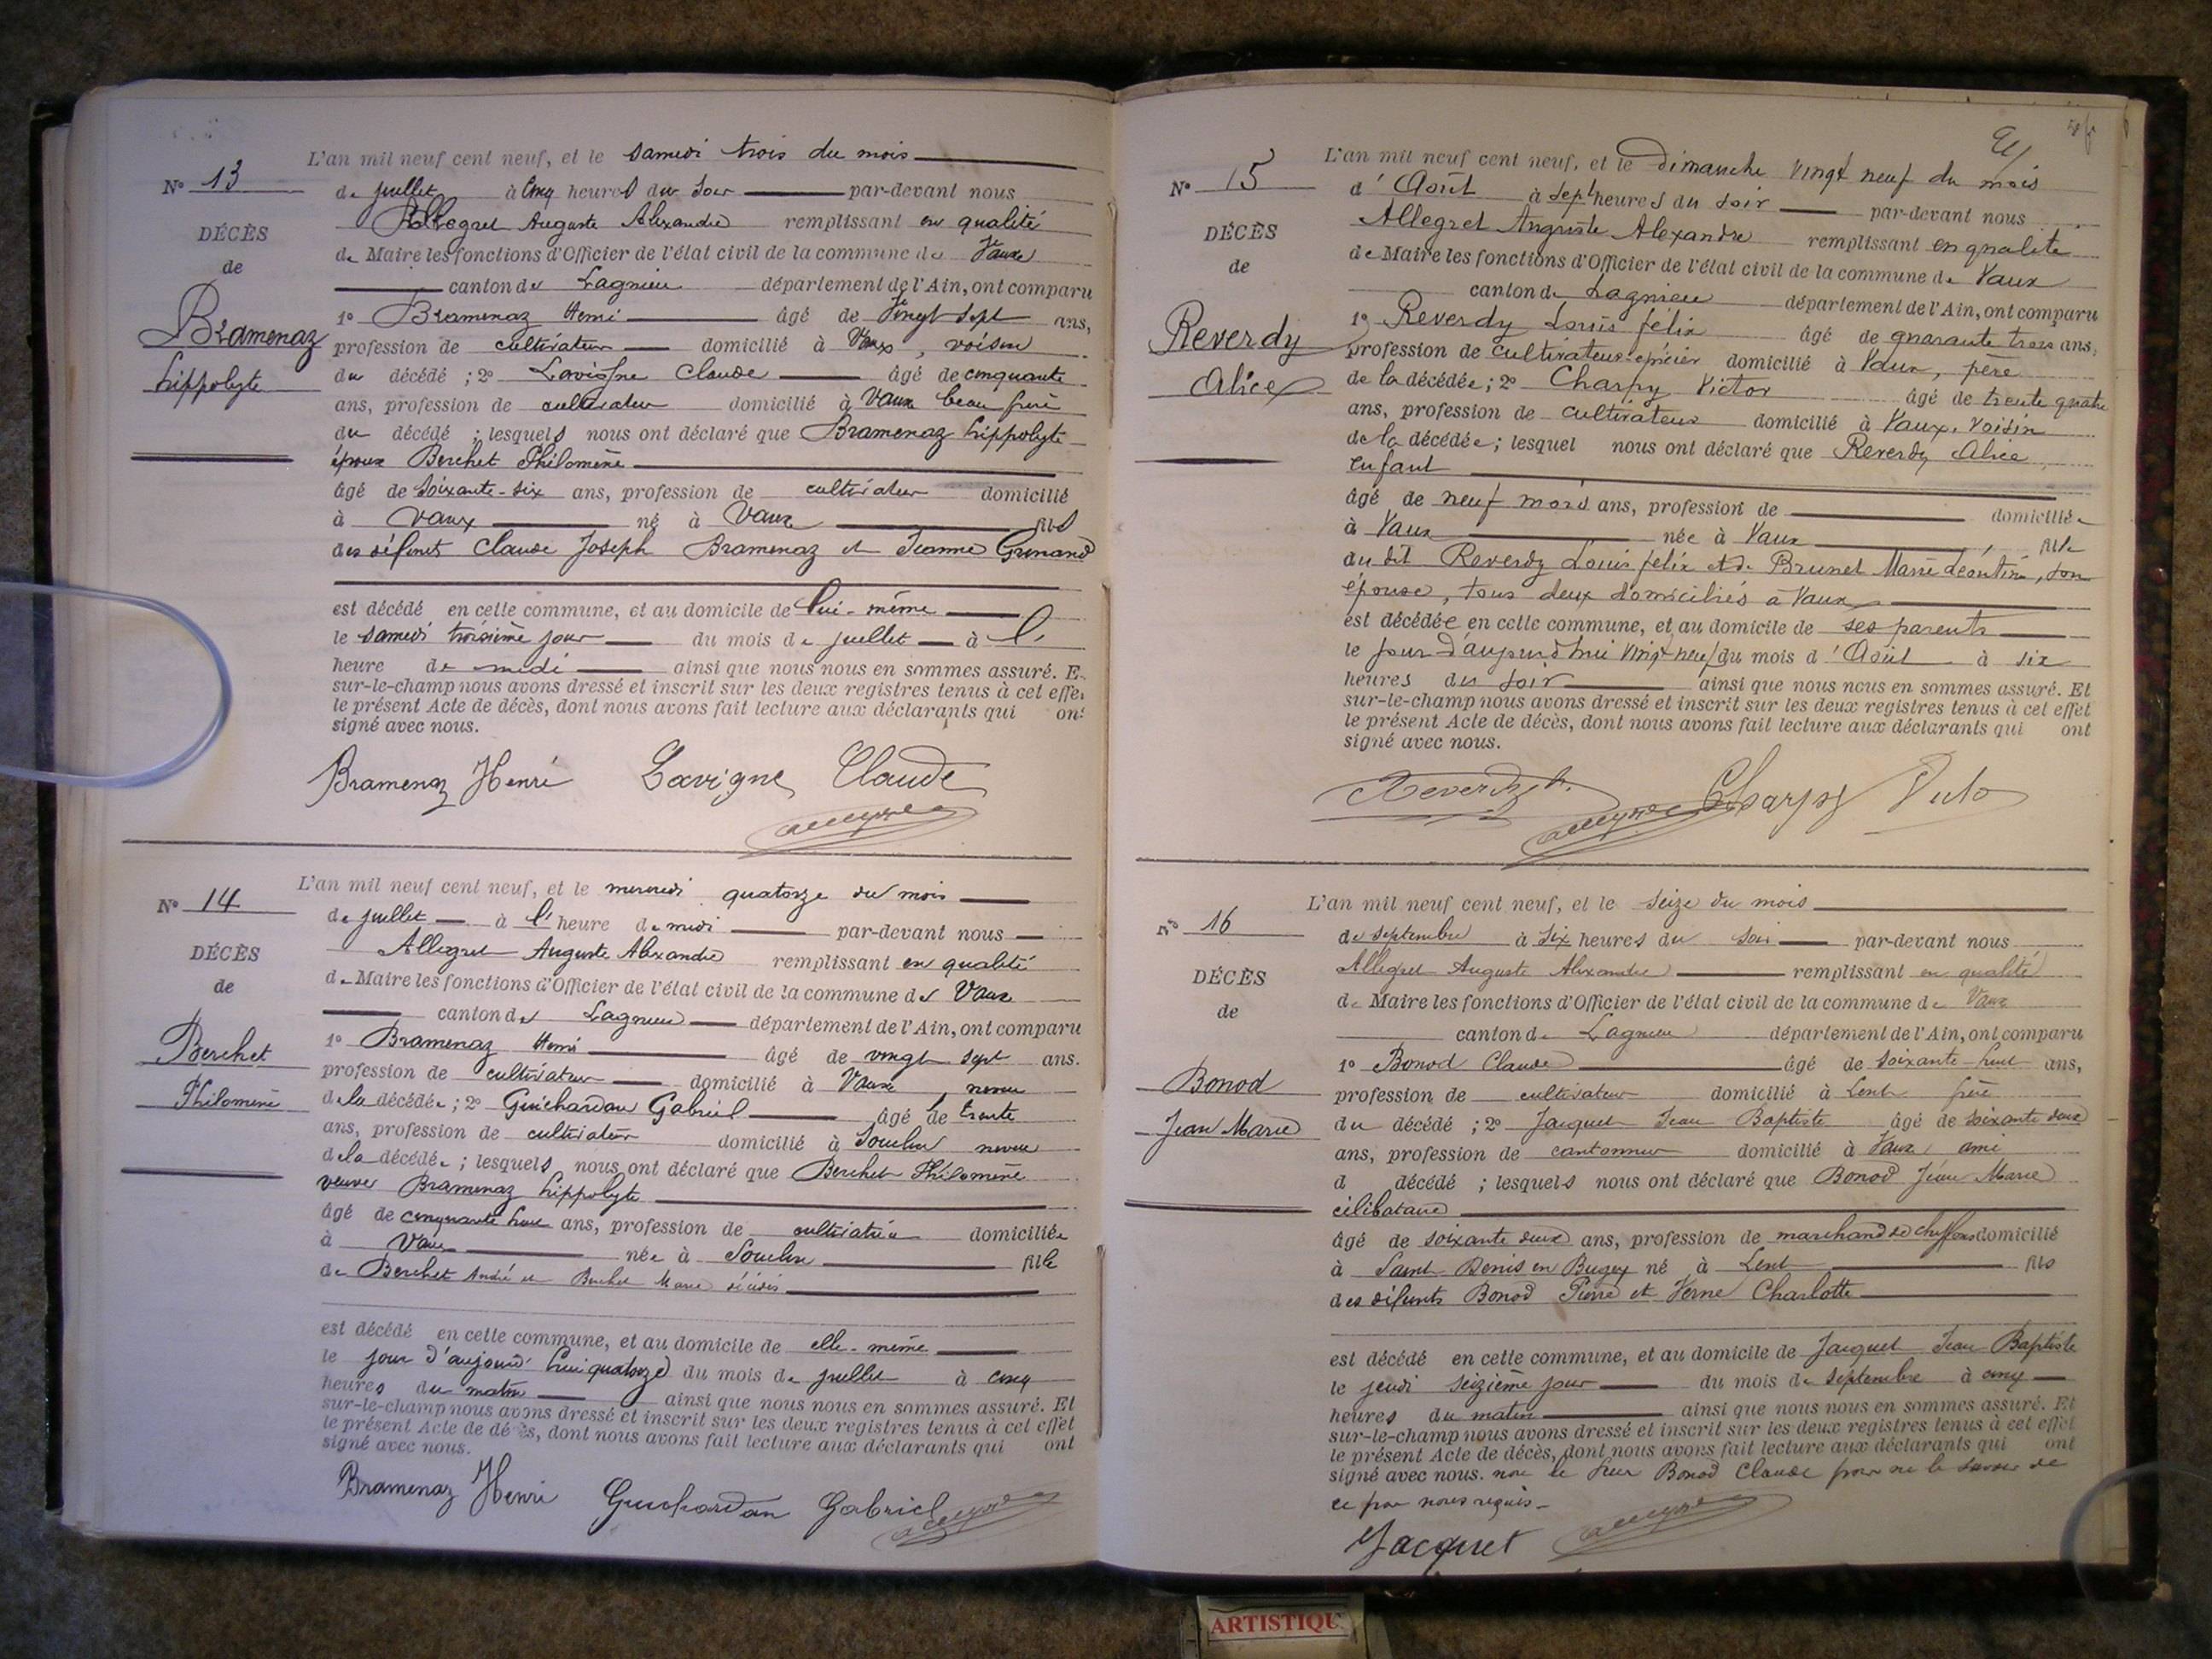 L'an mil neuf cent neuf, et le samedi trois du mois
N° 13
de juillet à cinq heures du soir par-devant nous
Allegret Auguste Alexandre remplissant en qualité
DÉCÈS
de Maire les fonctions d'Officier de l'état civil de la commune de Vaux
de
canton de Lagnieu département de l'Ain, ont comparu
Bramenaz
1° Bramenaz Henri âgé de Vingt sept ans,
profession de cultivateur domicilié à Vaux, voisin
hippolyte
du décédé ; 2° Lavigne Claude âgé de cinquante
ans, profession de cultivateur domicilié à Vaux beau frère
du décédé ; lesquels nous ont déclaré que Bramenaz hippolyte
époux Berchet Philomène
âgé de soixante-six ans, profession de cultivateur domicilié
à Vaux né à Vaux fils
des défunts Claude Joseph Bramenaz et Jeanne
est décédé en cette commune, et au domicile de lui-même
le samedi troisième jour du mois de juillet à l'
heure de midi ainsi que nous nous en sommes assuré. E
sur-le-champ nous avons dressé et inscrit sur les deux registres tenus à cet effe
le présent Acte de décès, dont nous avons fait lecture aux déclarants qui ont
signé avec nous.
Bramenaz Henri Lavigne Claude
L'an mil neuf cent neuf, et le mercredi quatorze du mois
N° 14
de juillet à l' heure de midi par-devant nous
Allegret Auguste Alexandre remplissant en qualité
DÉCÈS
de Maire les fonctions d'Officier de l'état civil de la commune de Vaux
de
canton de Lagnieu département de l'Ain, ont comparu
Berchet
1° Bramenaz Henri âgé de vingt sept ans.
profession de cultivateur domicilié à Vaux, neveu
Philomène
de la décédée ; 2° Guichardan Gabriel âgé de trente
ans, profession de cultivateur domicilié à Souclin neveu
de la décédée ; lesquels nous ont déclaré que Berchet Philomène
veuve Bramenaz hippolyte
âgé de cinquante huit ans, profession de cultivatrice domiciliée
à Vaux née à Souclin fille
de Berchet André et Berchet Marie décédés
est décédé en cette commune, et au domicile de elle-même
le jour d'aujourd'hui quatorze du mois de juillet à cinq
heures du matin ainsi que nous nous en sommes assuré. Et
sur-le-champ nous avons dressé et inscrit sur les deux registres tenus à cet effet
le présent Acte de décès, dont nous avons fait lecture aux déclarants qui ont
signé avec nous.
Bramenaz Henri Guichardan Gabriel
L'an mil neuf cent neuf, et le Dimanche vingt neuf du mois
N° 15
d' Août à sept heures du soir par-devant nous
Allegret Auguste Alexandre remplissant en qualité
DÉCÈS
de Maire les fonctions d'Officier de l'état civil de la commune de Vaux
de
canton de Lagnieu département de l'Ain, ont comparu
Reverdy
1° Reverdy Louis félix âgé de quarante trois ans,
profession de cultivateur-épicier domicilié à Vaux, père
Alice
de la décédée ; 2° Charpy Victor âgé de trente quatre
ans, profession de cultivateur domicilié à Vaux, voisin
de la décédée ; lesquel nous ont déclaré que Reverdy Alice
enfant
âgé de neuf mois ans, profession de domiciliée
à Vaux née à Vaux, fille
du dit Reverdy Louis félix et de Brunet Marie Léontine, son
épouse, tous deux domiciliés à Vaux
est décédée en cette commune, et au domicile de ses parents
le jour d'aujourd'hui vingt-neuf du mois d'Août à six
heures du soir ainsi que nous nous en sommes assuré. Et
sur-le-champ nous avons dressé et inscrit sur les deux registres tenus à cet effet
le présent Acte de décès, dont nous avons fait lecture aux déclarants qui ont
signé avec nous.
Reverdy Charpy
L'an mil neuf cent neuf, et le seize du mois
N° 16
de septembre à six heures du soir par-devant nous
Allegret Auguste Alexandre remplissant en qualité
DÉCÈS
de Maire les fonctions d'Officier de l'état civil de la commune de Vaux
de
canton de Lagnieu département de l'Ain, ont comparu
Bonod
1° Bonod Claude âgé de soixante-huit ans,
profession de cultivateur domicilié à Lent frère
Jean Marie
du décédé ; 2° Jacquet Jean Baptiste âgé de soixante deux
ans, profession de cantonnier domicilié à Vaux ami
d décédé ; lesquels nous ont déclaré que Bonod Jean Marie
célibataire
âgé de soixante deux ans, profession de marchand de chiffons domicilié
à Saint-Denis en Bugey né à Lent fils
des défunts Bonod Pierre et Verne Charlotte
est décédé en cette commune, et au domicile de Jacquet Jean Baptiste
le jeudi seizième jour du mois de septembre à cinq
heures du matin ainsi que nous nous en sommes assuré. Et
sur-le-champ nous avons dressé et inscrit sur les deux registres tenus à cet effet
le présent Acte de décès, dont nous avons fait lecture aux déclarants qui ont
signé avec nous. non le sieur Bonod Claude pour ne le savoir de
ce par nous requis
Jacquet
ARTISTIQU